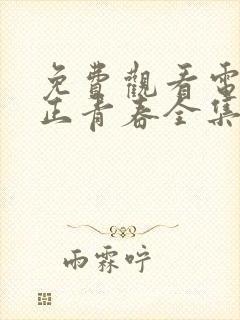 免費觀看電
正青春全集
雨霖咛